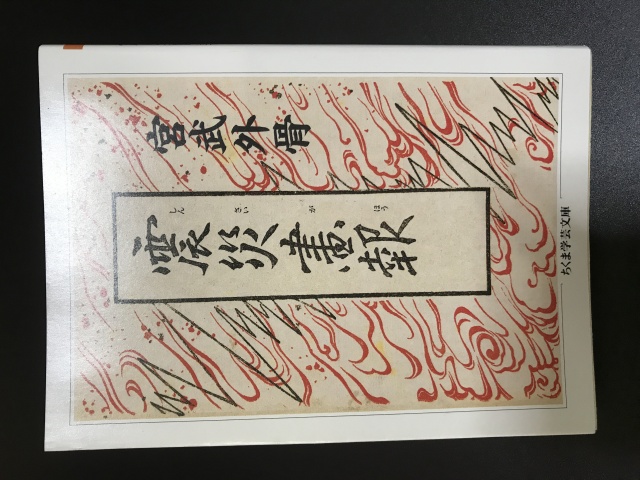 宮武外骨
震災畫報
しんさいがほう
ちくま学芸文庫